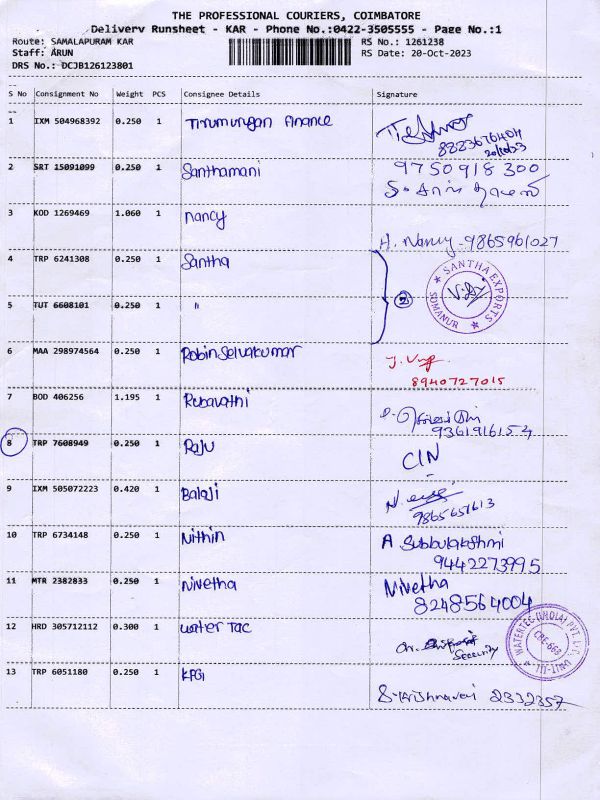 THE PROFESSIONAL COURIERS, COIMBATORE
Delivery Runsheet - KAR - Phone No.:0422-3505555 - Page No.:1
Route: SAMALAPURAM KAR RS No.: 1261238
Staff: ARUN RS Date: 20-Oct-2023
DRS No.: DCJB126123801
S No Consignment No Weight PCS Consignee Details Signature
1 IXM 504968392 0.250 1 Tirumurugan Finance
8223676404
20/10/23
2 SRT 15091099 0.250 1 Santhamani 9750918300
3 KOD 1269469 1.060 1 Nancy
H. Nancy - 9865961027
4 TRP 6241308 0.250 1 Santha
SANTHA EXPORTS
SOMANUR
2
5 TUT 6608101 0.250 1 "
6 MAA 298974564 0.250 1 Robin Selvakumar
8940727015
7 BOD 406256 1.195 1 Rubavathi
9361916154
8 TRP 7608949 0.250 1 Raju CIN
9 IXM 505072223 0.420 1 Balaji
9865651613
10 TRP 6734148 0.250 1 Nithin A Subbulakshmi
9442273995
11 MTR 2382833 0.250 1 Nivetha Nivetha
8248564004
12 HRD 305712112 0.300 1 Water Tac
Security
WATERTEC (INDIA) PVT. LTD.
UNIT-III
13 TRP 6051180 0.250 1 KPG
S-Krishnaveni 2332357